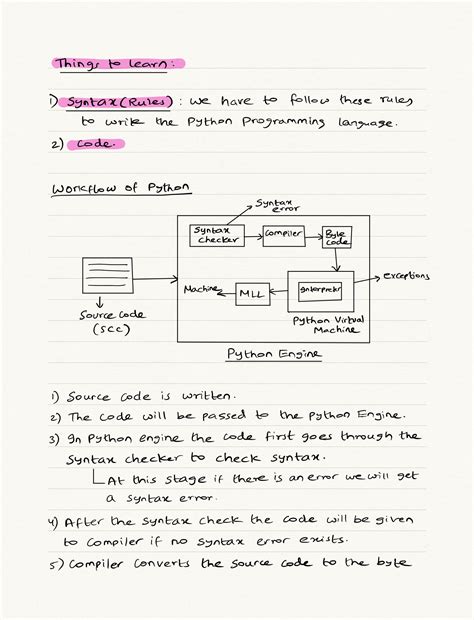 Things to learn:
1) Syntax (Rules) : we have to follow these rules
to write the Python Programming language.
2) Code.
Workflow of Python
Syntax
error
Syntax
checker
Compiler
Byte
code
exceptions
Machine
MLL
Interpreter
Python Virtual
Machine
Source Code
(SCC)
Python Engine
1) Source code is written.
2) The code will be passed to the Python Engine.
3) In Python engine the code first goes through the
Syntax checker to check syntax.
At this stage if there is an error we will get
a syntax error.
4) After the syntax check the code will be given
to Compiler if no syntax error exists.
5) Compiler converts the source code to the byte